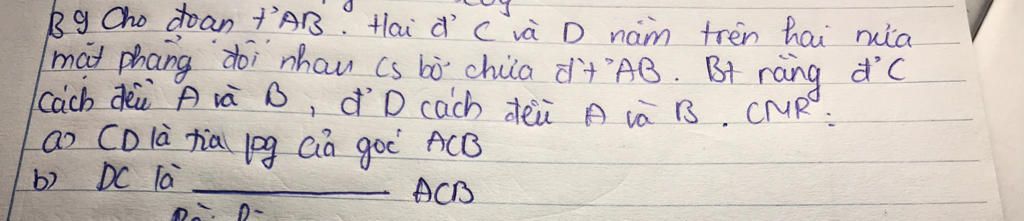 B9 Cho đoạn t² AB. Hai đ' C và D nằm trên hai nửa
mặt phẳng đối nhau cs bờ chứa đt² AB. Bt rằng đ' C
cách đều A và B, đ' D cách đều A và B. CMR:
a) CD là tia pg của góc ACB
b) DC là ____________ ACB